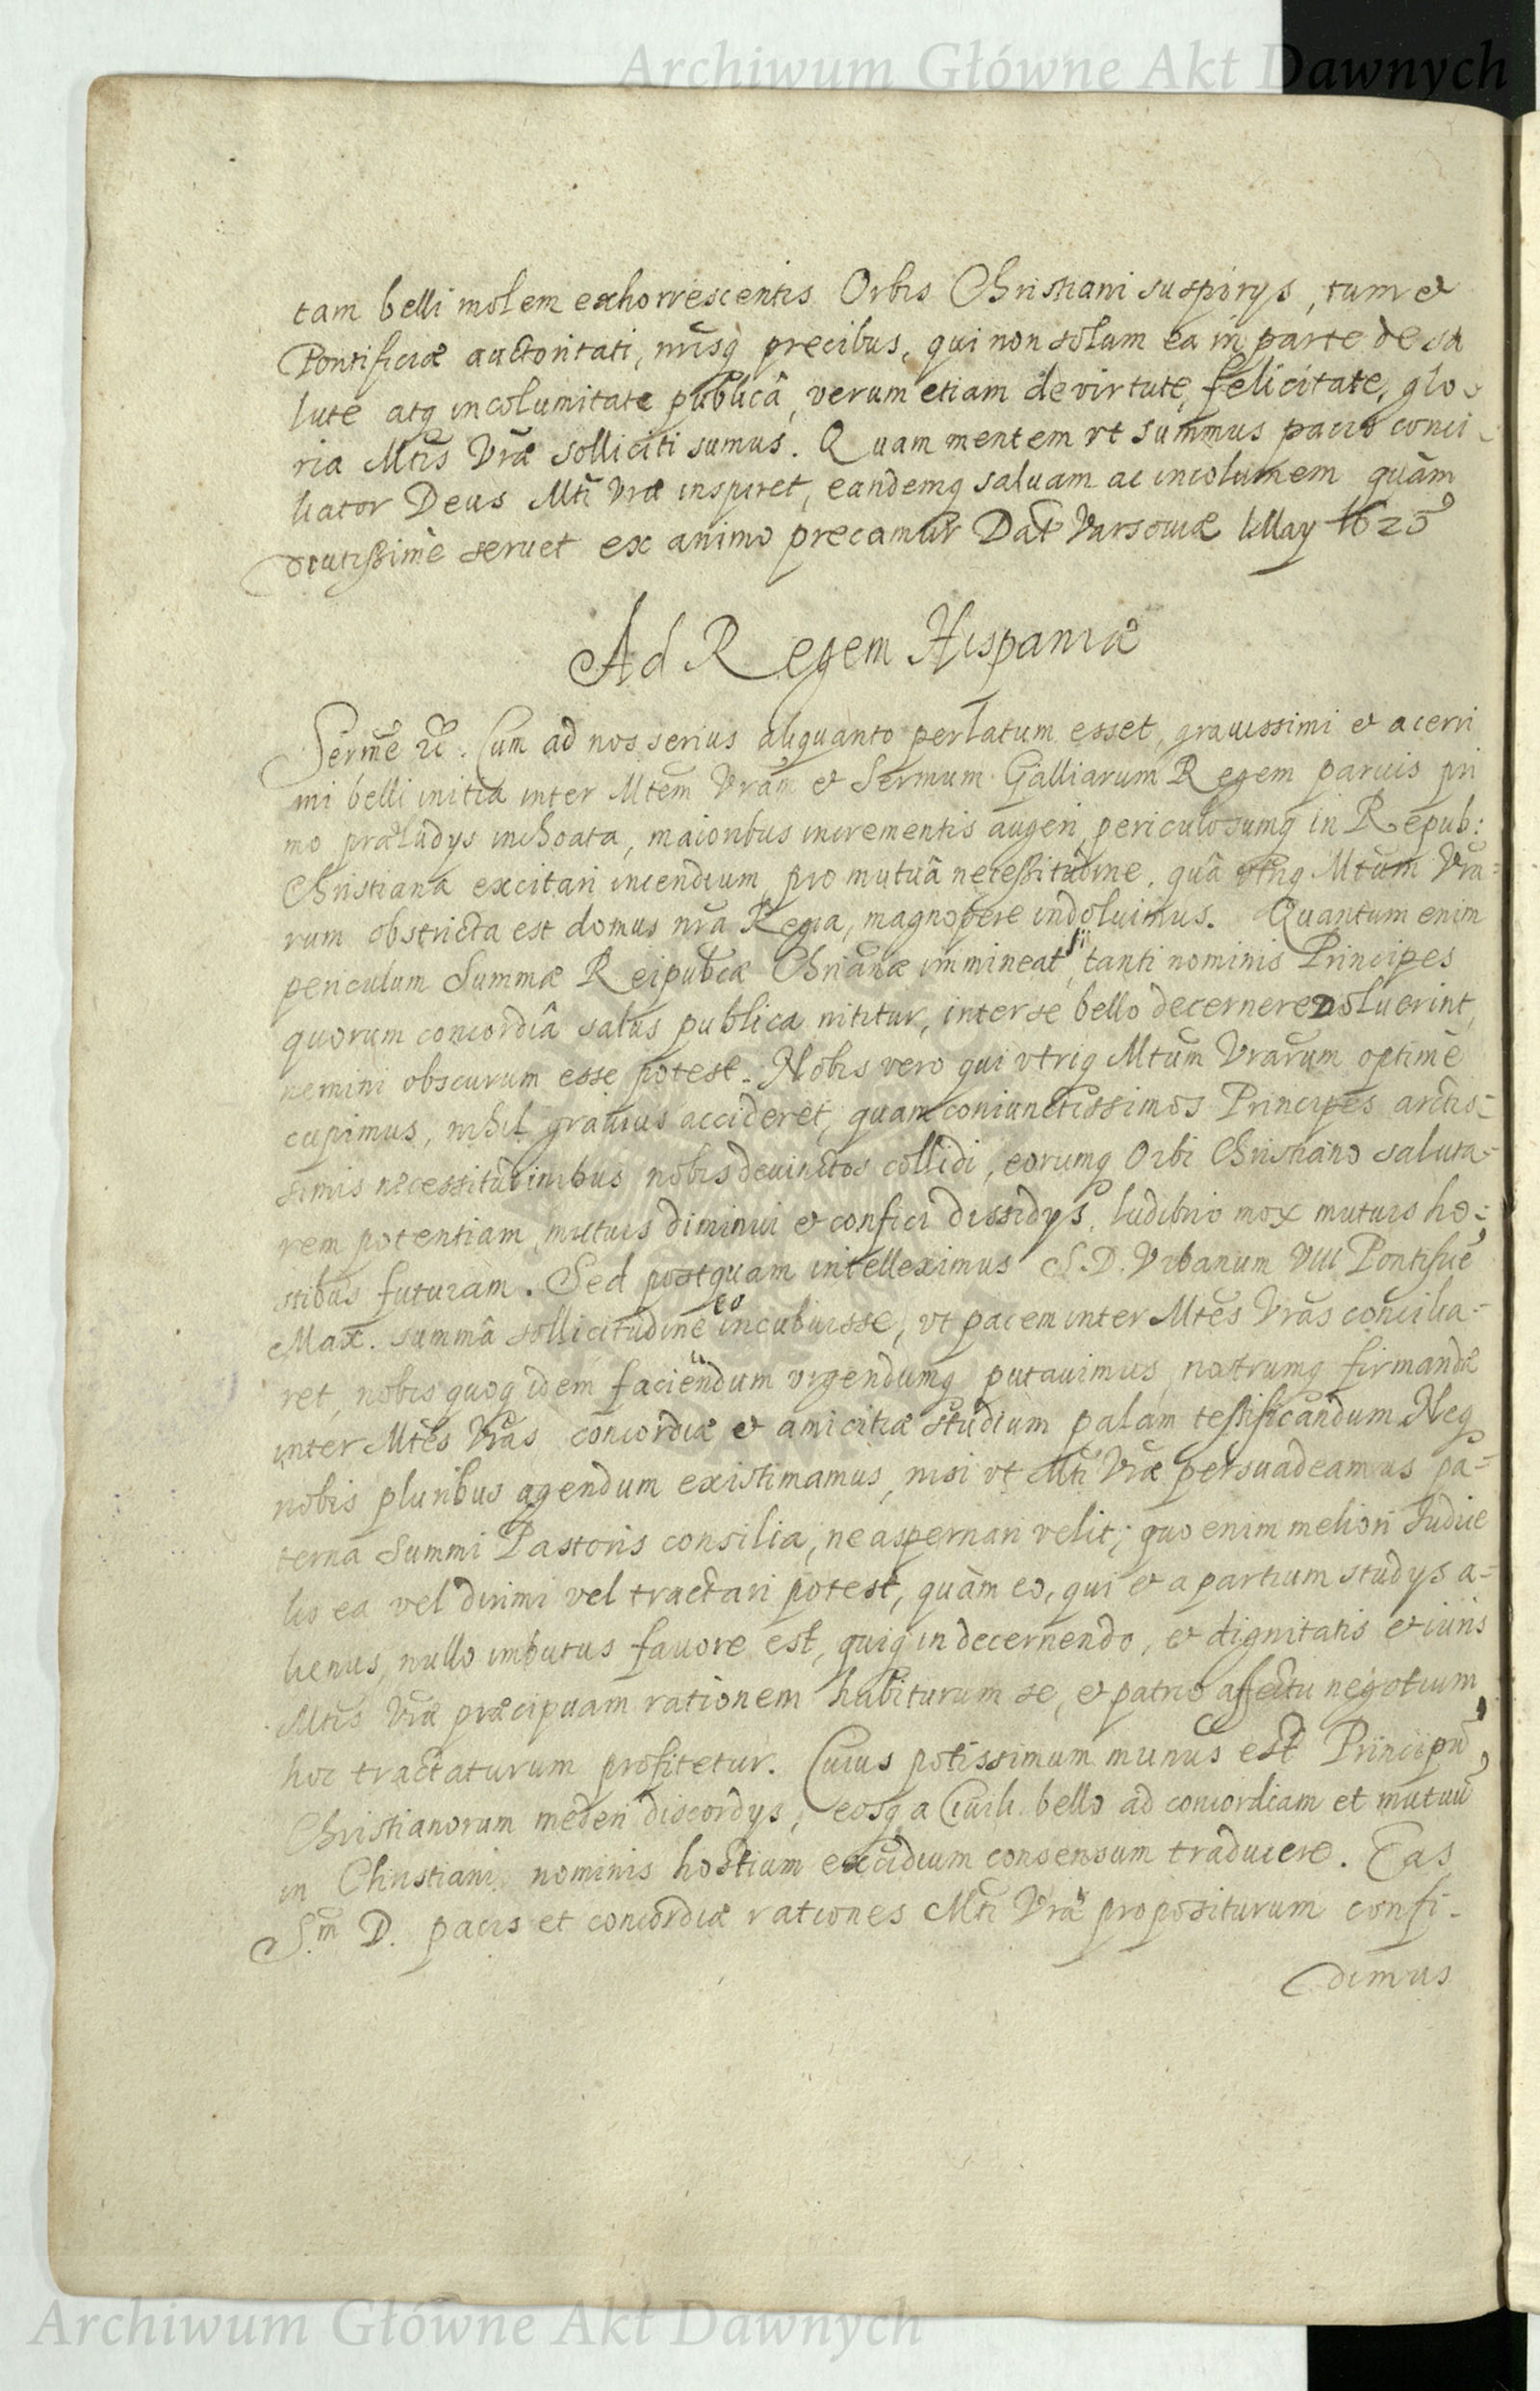 Archiwum Główne Akt Dawnych
tam belli molem exhorrescentis Orbis Christiani suspirys, tum et
Pontificiæ auctoritati, nrisq precibus, qui non solum ea in parte de sa
lute atq incolumitate publicâ, verum etiam de virtute, felicitate, glo-
ria Mtis Vræ solliciti sumus. Quam mentem vt summus pacis conci-
liator Deus Mti Vræ inspiret, eandemq saluam ac incolumem quàm
diutissimè seruet ex animo precamur Dat Varsouiæ May
Ad Regem Hispaniæ
Serme. Cum ad nos serius aliquanto perlatum esset, grauissimi et acerri
mi belli initia inter Mtem Vram et Sermum Galliarum Regem paruis pri
mo præludys inchoata, maioribus incrementis augeri, periculosumq in Repub:
Christiana excitari incendium, pro mutuâ necessitudine, quâ vtriq Mtum Vra-
rum obstricta est domus nra Regia, magnopere indoluimus. Quantum enim
periculum Summæ Reipubcæ Chrianæ immineat si, tanti nominis Principes
quorum concordiâ salus publica nititur, inter se bello decernere voluerint,
nemini obscurum esse potest. Nobis vero qui vtriq Mtum Vrarum optimè
cupimus, nihil grauius accideret, quam coniunctissimos Principes arctis-
simis necessitudinibus nobis deuinctos collidi, eorumq Orbi Christiano saluta-
rem potentiam, mutuis diminui et confici dissidys, ludibrio mox mutuis ho-
stibus futuram. Sed postquam intelleximus S.D. Vrbanum VIII Pontifice
Max. summâ sollicitudine eo incubuisse, vt pacem inter Mtes Vras concilia-
ret, nobis quoq idem faciendum vrgendumq putauimus, nostrumq firmandæ
inter Mtes Vras concordiæ et amicitiæ studium palam testificandum. Neq
nobis pluribus agendum existimamus, nisi vt Mti Vræ persuadeamus pa-
terna Summi Pastoris consilia, ne aspernari velit; quo enim meliori Iudice
lis ea vel dirimi vel tractari potest, quàm eo, qui et a partium studys a-
lienus, nullo imbutus fauore est, quiq in decernendo, et dignitatis et iuris
Mtis Vræ præcipuam rationem habiturum se, et patrio affectu negotium
hoc tractaturum profitetur. Cuius potissimum munus est Principu
Christianorum mederi discordys, eosq a Ciuili bello ad concordiam et mutuu
in Christiani nominis hostium excidium consensum traducere. Eas
S.m D. pacis et concordiæ rationes Mti Vræ propositurum confi-
dimus
Archiwum Główne Akt Dawnych